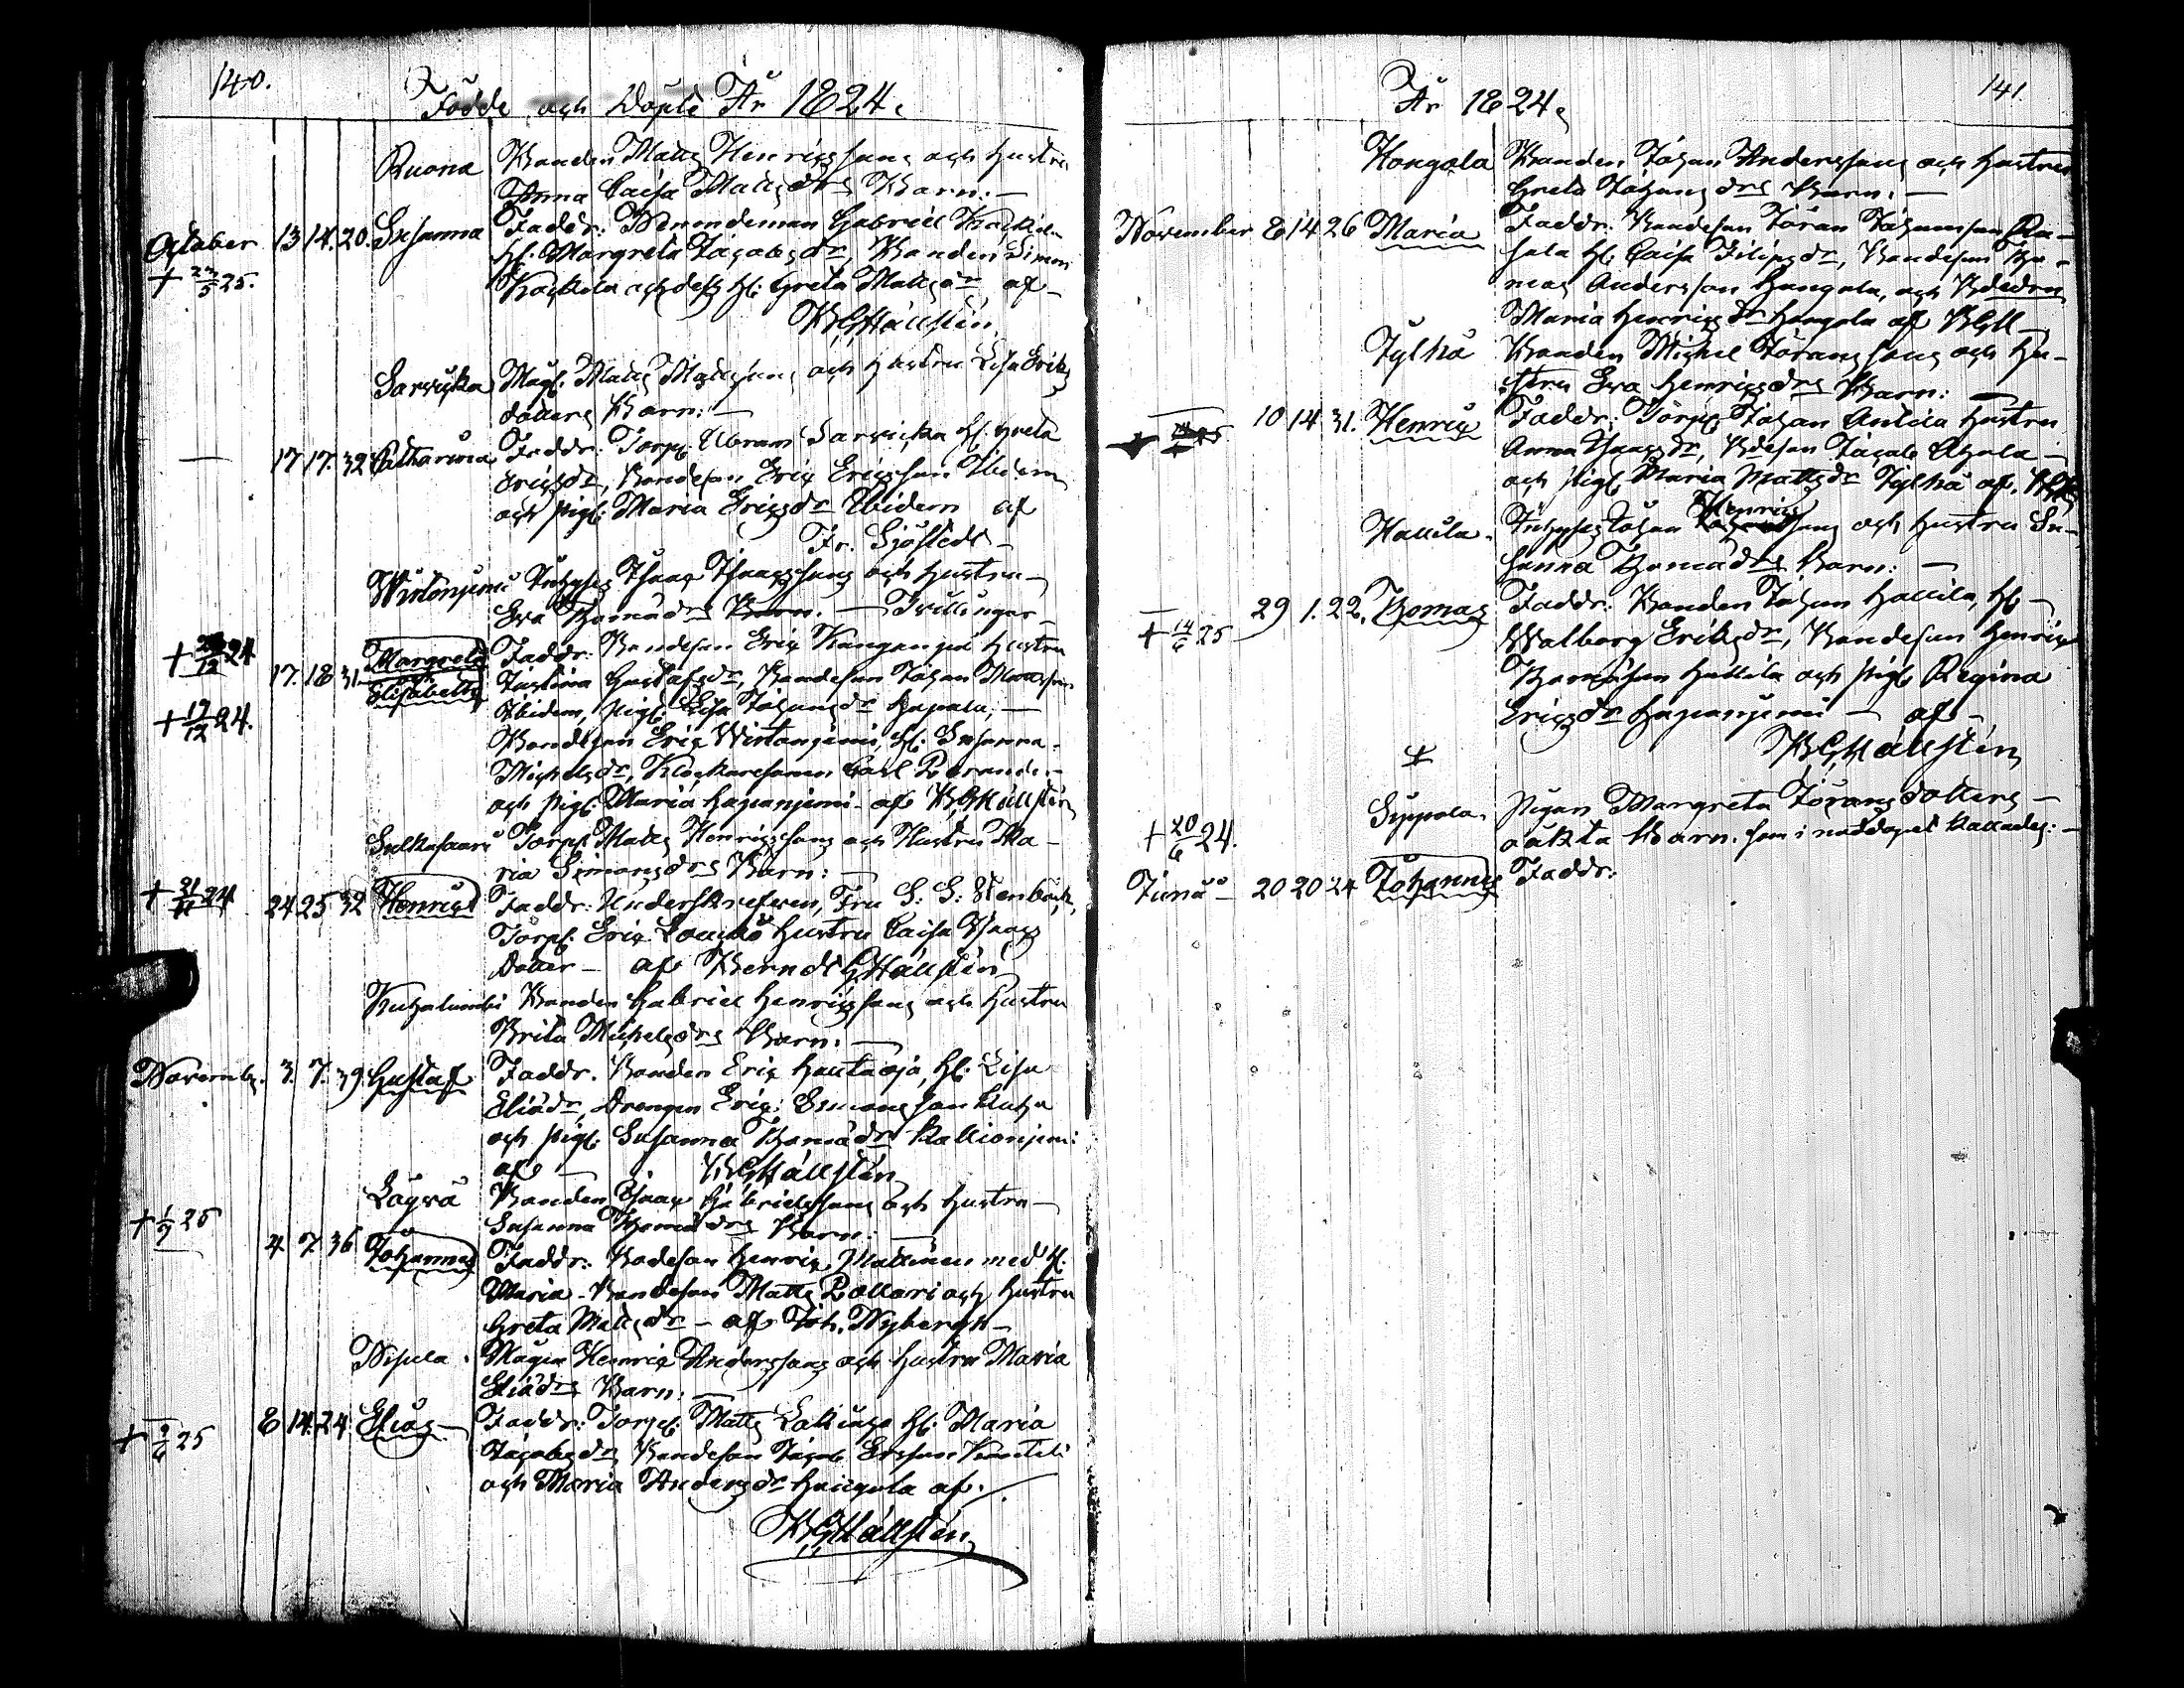 140.
Födde och Döpte År 1824.
Ruona Bonden Matts Henricssons och Hustru
Anna Caisa Mattsdrs Barn. —
October 13 14. 20. Susanna Faddr: Nämndeman Gabriel
+ 25. hu: Margreta Jacobsdr, Bonden Simon
och dess hu: Greta Mattsdr af
BGHällsten
Sarvicka Matts Mattssons och Hustru Lisa Eriks
dotters Barn: —
— 17 17. 32 Catharina Faddr: Torp: Abram Sarvicka hu: Greta
Ericsdr, Bondeson Eric Ericsson Ibidem
och pig: Maria Ericsdr Ibidem af
Fr. Sjöstedt —
Wirtaniemi Inhyses Isaac Isaacssons och Hustru —
Eva Thomädrs Barn. — Tvillingar —
+ 24 17. 18 31 Margreta Faddr: Bondeson Eric Kangas Hustru
Elisabetha Justina Gustafsdr, Bondeson Johan
+ 17/12 24. Ibidem, pig: Lisa Johansdr Hapala, —
Bondeson Eric Wirtaniemi, hu: Susanna
Michelsdr, Klockaresonen Carl
och pig: Maria Haapaniemi — af BGHällsten
Salkosaari Torp: Matts Henricssons och Hustru Ma-
ria Simonsdrs Barn: —
+ 24 24 25 32 Henric Faddr: Underskrefven, Fru S: S: Stenbäck,
Torp: Eric Hustru Caisa Isaacs
Dotter — af Bernd GHällsten
Kuhalambi Bonden Gabriel Henricssons och Hustru
Brita Michelsdrs Barn. —
Novemb. 3. 7. 39 Gustaf Faddr. Bonden Eric Hautaoja, hu: Lisa
Eliädr, Drengen Eric Simonsson Kuha
och pig: Susanna Thomädr Kallioniemi
af — BGHällsten
Lågvä Bonden Isaac Gabrielssons och Hustru —
+ 25 Susanna Thomädrs Barn: —
4. 7. 36 Johannes Faddr: Bodeson Henric Mattinen med hu:
Maria — Bondeson Matts Pollari och Hustru
Greta Mattsdr — af Joh. Nybergh —
Nisula. Mågen Henric Anderssons och Hustru Maria
Eliädrs Barn: —
+ 25 8 14. 24 Elias Faddr: Torp: Matts hu: Maria
Jacobsdr, Bondeson Jacob Ersson
och Maria Andersdr Hangola af.
BGHällsten
141.
År 1824.
Hongola Bonden Johan Anderssons och Hustru
Greta Johansdrs Barn. —
November 8 14 26 Maria Faddr: Bondeson Jöran Johansson
sala hu: Caisa Filipsdr, Bondeson Tho-
mas Andersson Hangola, och
Maria Henricsdr Hongola af BGH —
Jylhä Bonden Michel Jöranssons och Hu-
stru Eva Henricsdrs Barn: —
10 14 31. Henric Faddr: Torp: Johan Antila Hustru
Anna Isaacsdr, Bdeson Jacob Ahola —
och pig: Maria Mattsdr Jylhä af. BGH
Henrics
Hautila. Inhyses Johan sons och Hustru Su-
sanna Thomädrs Barn: —
29 1. 22. Thomas Faddr: Bonden Johan Hautila, hu —
+ 14/6 25 Walborg Eriksdr, Bondeson Henric
Thomasson Hautila och pig: Regina
Ericsdr Haapaniemi — af —
BGHällsten
+
Sippola. Pigan Margreta Jöransdotters —
+ 20/6 24. oäkta Barn. som i nöddopet kallades: —
Junii — 20 20 24 Johannes Faddr: